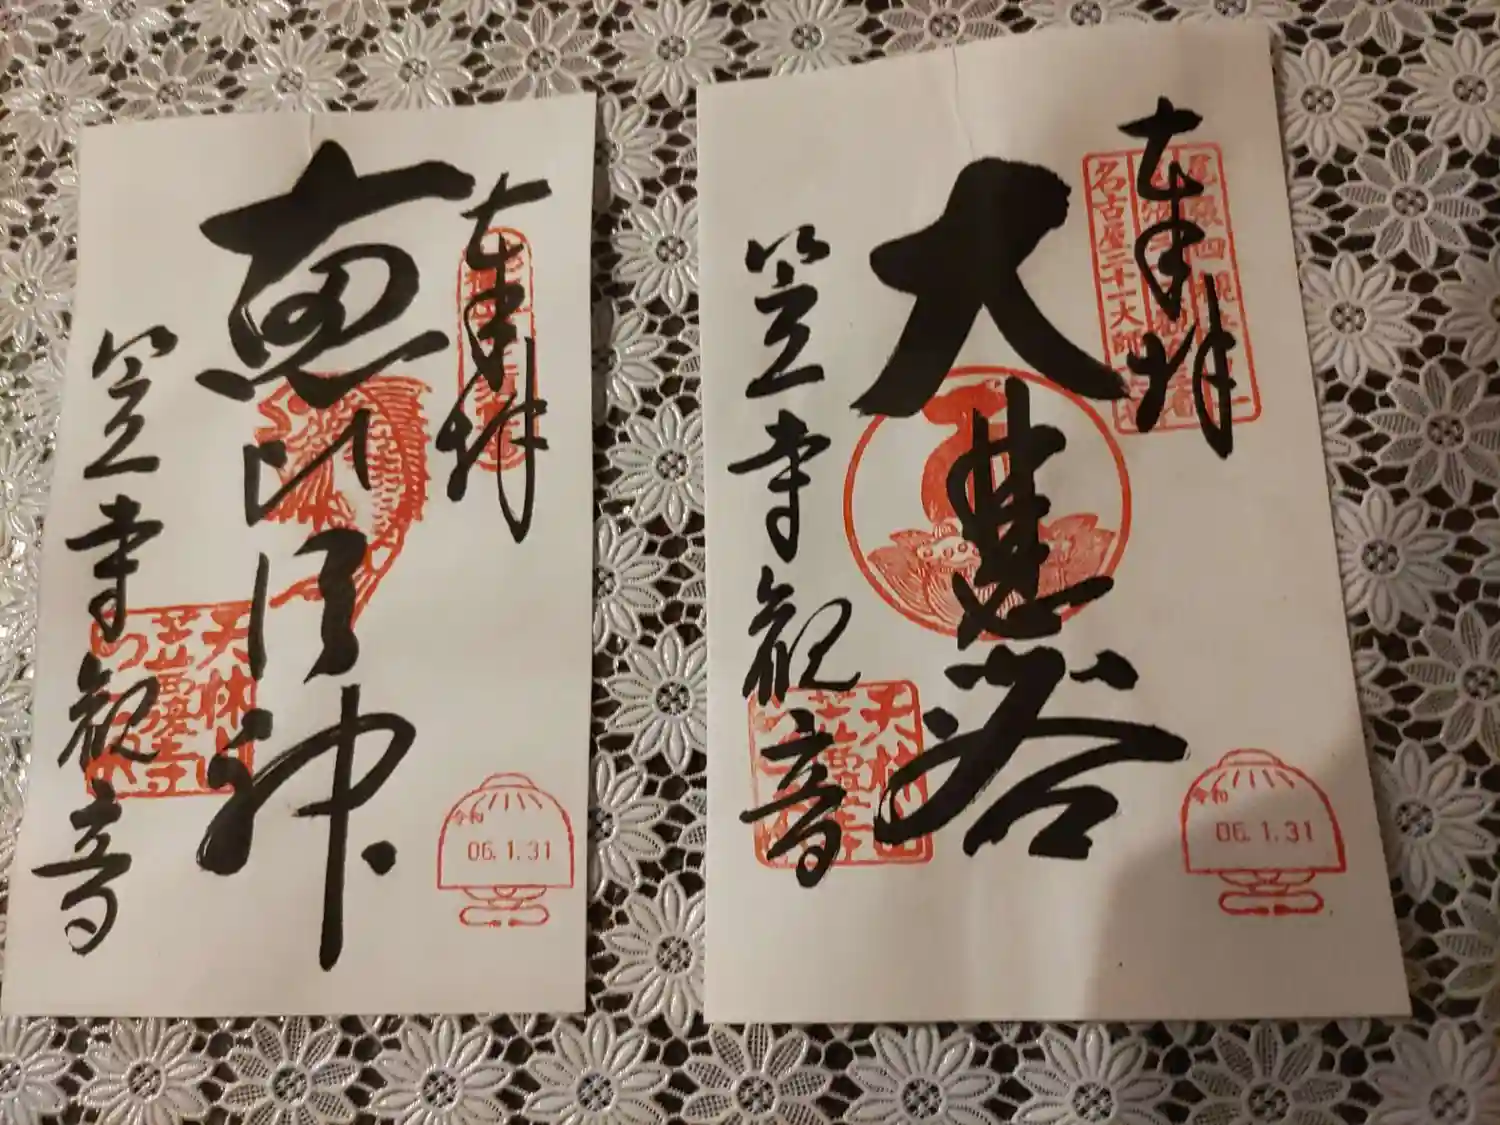 奉拝
恵比須神
笠寺観音
天林山
笠覆寺
令和
06.1.31
奉拝
尾張四観音
名古屋二十一大師
大悲
笠寺観音
天林山
笠覆寺
令和
06.1.31